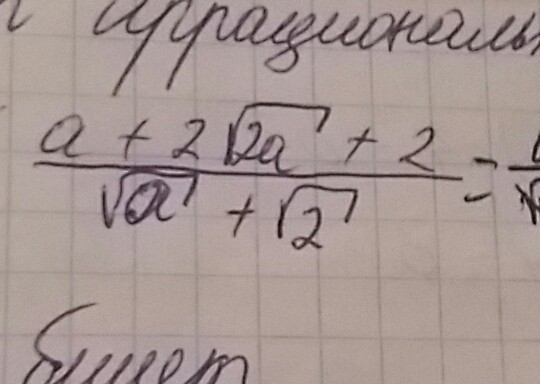 иррациональн
a + 2√2a + 2
√a + √2 =
билет